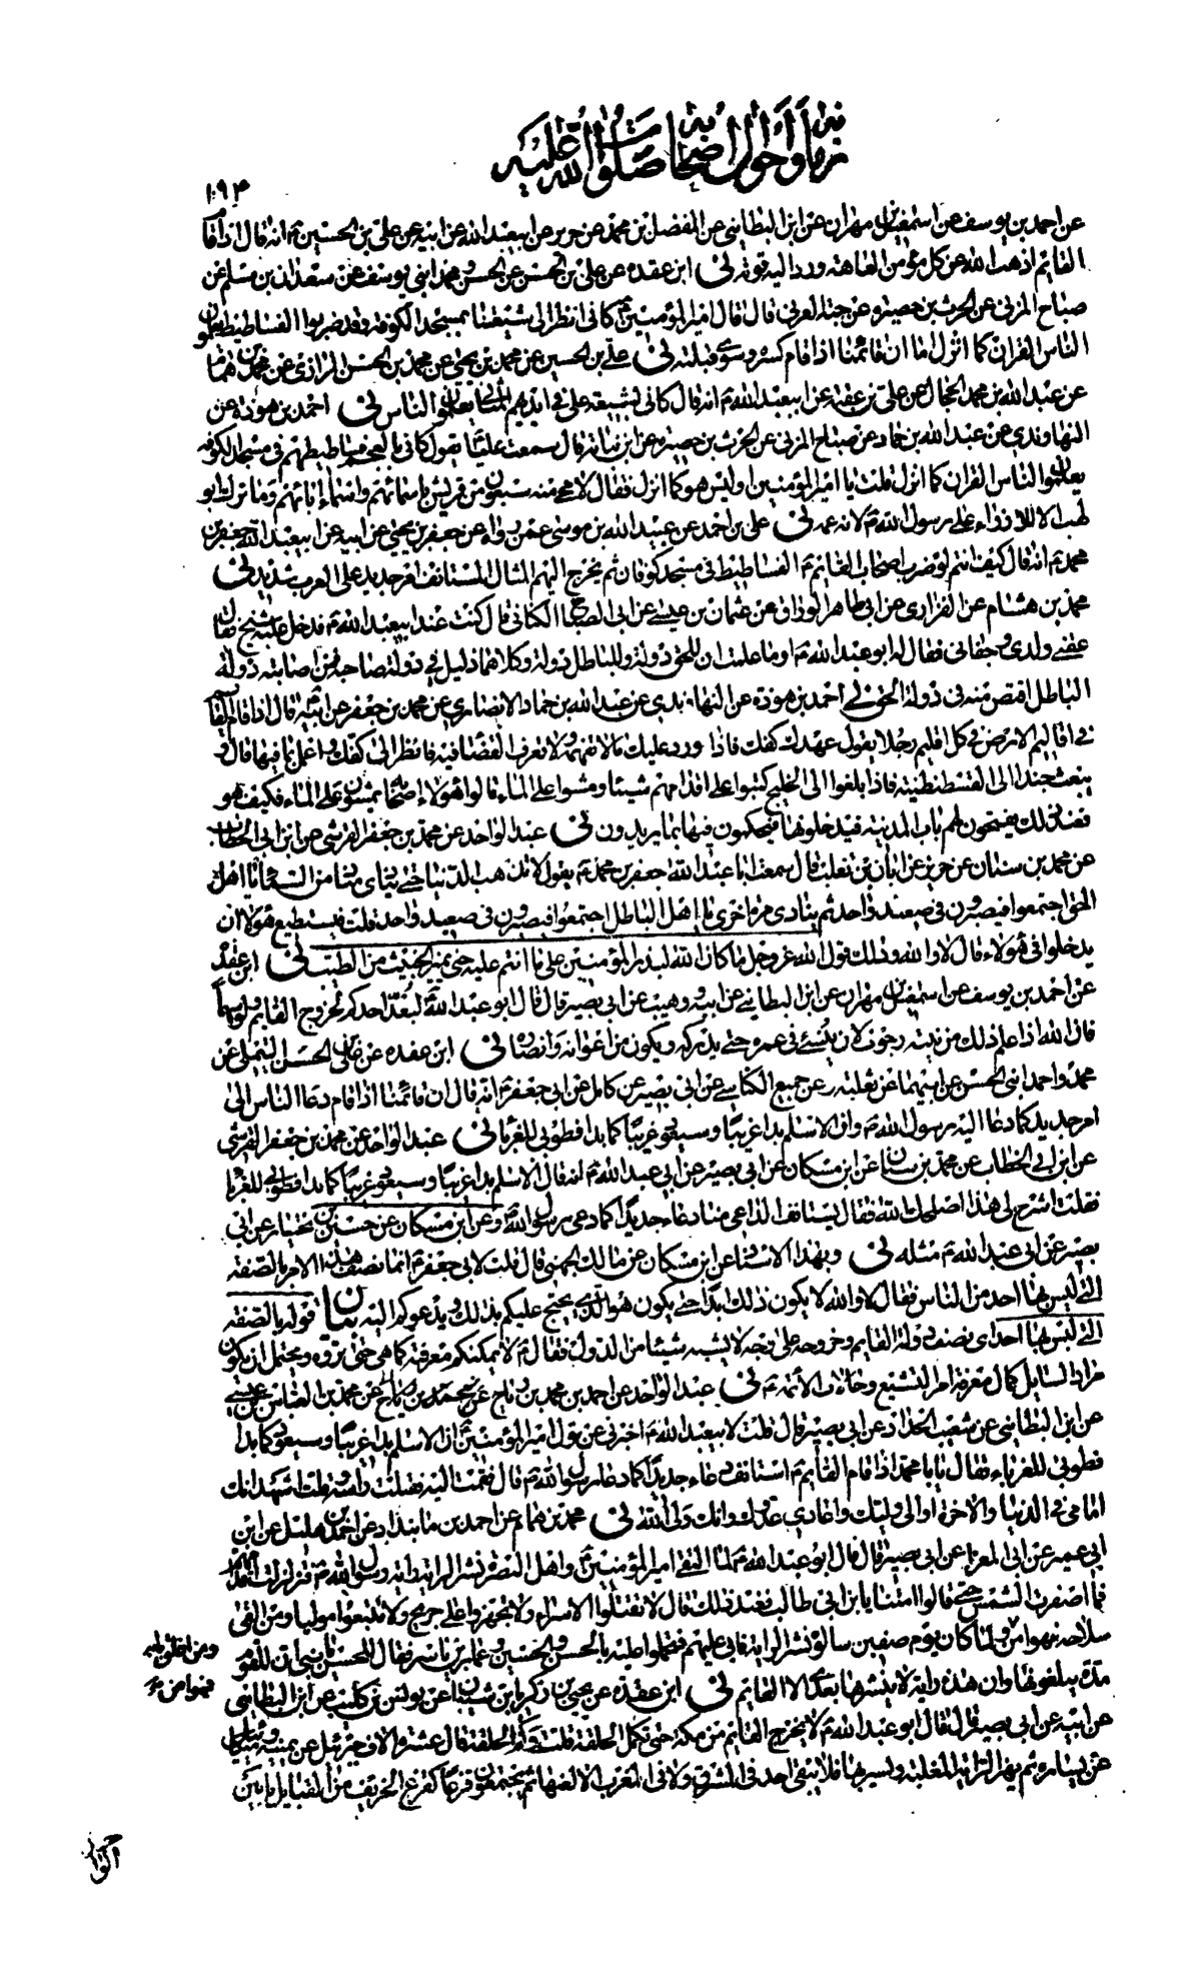 زمانه و احوال اصحابه صلوات الله عليه
١٩٣
عن احمد بن يوسف عن اسمعيل بن مهران عن ابن البطائني عن المفضل بن محمد عن حريز عن ابيعبد الله عن ابيه عن علي بن الحسين ع انه قال اذا قام
القايم اذهب الله عن كل مؤمن العاهة ورد اليه قوته نى ابن عقدة عن علي بن الحسن عن الحسن و محمد ابني يوسف عن سعدان بن مسلم عن
صباح المزني عن الحرث بن حصيرة عن حبة العرني قال قال امير المؤمنين ع كانى انظر الى شيعتنا بمسجد الكوفة وقد ضربوا الفساطيط يعلمون
الناس القران كما انزل اما ان قائمنا اذا قام كسره وسوى قبلته نى علي بن الحسين عن محمد بن يحيى عن محمد بن الحسن الرازي عن محمد بن
عن عبد الله بن محمد الحجال عن علي بن عقبة عن ابيعبد الله ع انه قال كانى بشيعة علي في ايديهم المثاني يعلمون الناس نى احمد بن هوذة عن
النهاوندي عن عبد الله بن حماد عن صباح المزني عن الحرث بن حصيرة عن ابن نباتة قال سمعت عليا ع يقول كاني بالعجم فساطيطهم في مسجد الكوفة
يعلمون الناس القران كما انزل قلت يا امير المؤمنين اوليس هو كما انزل فقال لا محي منه سبعون من قريش باسمائهم واسماء ابائهم وما ترك ابو
لهب الا للازراء على رسول الله ص لانه عمه نى علي بن احمد عن عبيد الله بن موسى عمن رواه عن جعفر بن يحيى عن ابيه عن ابيعبد الله جعفر بن
محمد ع انه قال كيف انتم لو ضرب اصحاب القايم ع الفساطيط في مسجد كوفان ثم يخرج اليهم المثال المستانف امر جديد على العرب شديد نى
محمد بن هشام عن الفزاري عن ابى طاهر الوراق عن عثمان بن عيسى عن ابي الصباح الكناني قال كنت عند ابيعبد الله ع فدخل عليه شيخ فقال
عقني ولدي وجفاني فقال له ابو عبد الله ع اوما علمت ان للحق دولة وللباطل دولة وكلاهما ذليل في دولة صاحبه فمن اصابته دولة
الباطل اقتص منه في دولة الحق نى احمد بن هوذة عن النهاوندي عن عبد الله بن حماد الانصاري عن محمد بن جعفر عن ابيه قال اذا قام القايم بعث
في اقاليم الارض في كل اقليم رجلا يقول عهدك كفك فاذا ورد عليك مالا تفهمه ولا تعرف القضا فيه فانظر الى كفك واعمل بما فيها قال و
يبعث جندا الى القسطنطينية فاذا بلغوا الى الخليج كتبوا على اقدامهم شيئا ومشوا على الماء قالوا هؤلاء اصحابه يمشون على الماء فكيف هو
فعند ذلك يفتحون لهم باب المدينة فيدخلونها فيحكمون فيها بما يريدون نى عبد الواحد عن محمد بن جعفر القرشي عن ابن ابي الخطاب
عن محمد بن سنان عن حريز عن ابان بن تغلب قال سمعت ابا عبد الله جعفر بن محمد ع يقول لا تذهب الدنيا حتى ينادي مناد من السماء يا اهل
الحق اجتمعوا فيصيرون في صعيد واحد ثم ينادي مرة اخرى يا اهل الباطل اجتمعوا فيصيرون في صعيد واحد قلت فيستطيع هؤلاء ان
يدخلوا في هؤلاء قال لا والله وذلك قول الله عز وجل ما كان الله ليذر المؤمنين على ما انتم عليه حتى يميز الخبيث من الطيب نى ابن عقدة
عن احمد بن يوسف عن اسمعيل بن مهران عن ابن البطايني عن ابيه ووهيب عن ابي بصير قال قال ابو عبد الله ع ليعد احدكم لخروج القايم ولو سهما
فان الله اذا علم ذلك من نيته رجوت لان ينسئ في عمره حتى يدركه ويكون من اعوانه وانصاره نى ابن عقدة عن علي بن الحسن التيملي عن
محمد واحمد ابني الحسن عن ابيهما عن ثعلبة وعن جميع الكناسي عن ابى بصير عن كامل عن ابي جعفر ع انه قال ان قائمنا اذا قام دعا الناس الى
امر جديد كما دعا اليه رسول الله ص وان الاسلام بدا غريبا وسيعود غريبا كما بدا فطوبى للغربا نى عبد الواحد عن محمد بن جعفر القرشي
عن ابن ابي الخطاب عن محمد بن سنان عن ابن مسكان عن ابي بصير عن ابي عبد الله ع انه قال الاسلام بدا غريبا وسيعود غريبا كما بدا فطوبى للغربا
فقلت اشرح لي هذا اصلحك الله فقال يستانف الداعي منا دعاء جديدا كما دعى رسول الله ص وعن ابن مسكان عن حسين بن مختار عن ابي
بصير عن ابي عبد الله ع مثله نى وبهذا الاسناد عن ابن مسكان عن مالك الجهني قال قلت لابي جعفر ع انما نصف هذا الامر بالصفة
التي ليس بها احد من الناس فقال لا والله لا يكون ذلك ابدا حتى يكون هو الذي يحتج عليكم بذلك ويدعوكم اليه بيان قوله بالصفة
التي ليس بها احد اي نصف دولة القايم وخروجه على وجه لا يشبه شيئا من الدول فقال ع لا يمكنكم معرفته كما هي حتى تروه ويحتمل ان يكون
مراد السايل كمال معرفة امر التشيع وحالات الائمة ع نى عبد الواحد عن احمد بن محمد بن رباح عن محمد بن العباس بن عيسى
عن ابن البطايني عن شعيب الحداد عن ابي بصير قال قلت لابيعبد الله ع اخبرني عن قول امير المؤمنين ع ان الاسلام بدا غريبا وسيعود كما بدا
فطوبى للغرباء فقال يا با محمد اذا قام القايم ع استانف دعاء جديدا كما دعا رسول الله ص قال فقمت اليه فقبلت راسه وقلت اشهد انك
امامي في الدنيا والاخرة اوالي وليك واعادي عدوك وانك ولي الله نى محمد بن همام عن احمد بن مابنداد عن احمد بن هليل عن ابن
ابي عمير عن ابي المعزا عن ابي بصير قال قال ابو عبد الله ع لما التقى امير المؤمنين ع واهل البصرة نشر الراية راية رسول الله ص فتزلزلت اقدامهم
فما اصفرت الشمس حتى قالوا امتنا يا ابن ابي طالب فعند ذلك قال لا تقتلوا الاسراء ولا تجهزوا على جريح ولا تتبعوا موليا ومن القى
سلاحه فهو امن ولما كان يوم صفين سالوه نشر الراية فابى عليهم فتحملوا عليه بالحسن والحسين وعمار بن ياسر فقال للحسن يا بني ان للقوم
ومن اغلق بابه
فهو امن
مدة يبلغونها وان هذه راية لا ينشرها بعدي الا القايم نى ابن عقدة عن يحيى بن زكريا بن شيبان عن يونس بن كليب عن ابن البطايني
عن ابيه عن ابي بصير قال قال ابو عبد الله ع لا يخرج القايم من مكة حتى تكمل الحلقة قلت وكم الحلقة قال عشرة الاف جبرئيل عن يمينه وميكائيل
عن يساره ثم يهز الراية المغلبة ويسير بها فلا يبقى احد في المشرق ولا في المغرب الا لعنها ثم يجتمعون قزعا كقزع الخريف من القبايل ما بين
الواحد